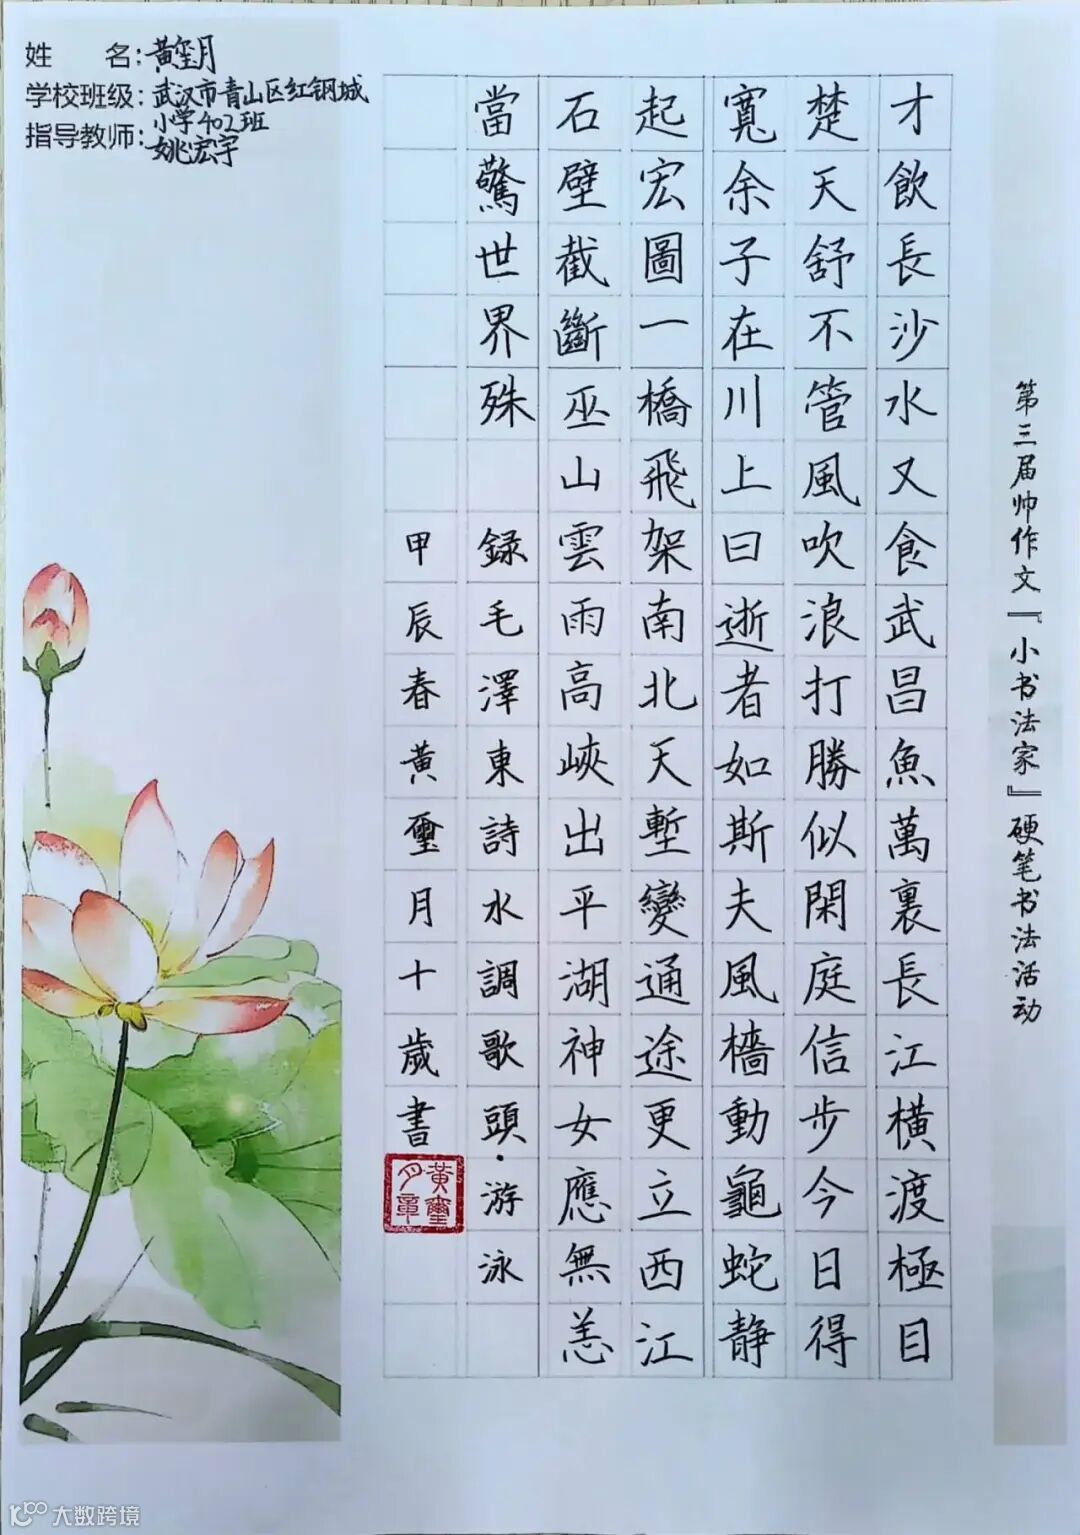 姓　名：黄玺月
学校班级：武汉市青山区红钢城
小学402班
指导教师：姚宏宇
第三届帅作文『小书法家』硬笔书法活动
才飲長沙水又食武昌魚萬裏長江橫渡極目
楚天舒不管風吹浪打勝似閑庭信步今日得
寬余子在川上曰逝者如斯夫風檣動龜蛇静
起宏圖一橋飛架南北天塹變通途更立西江
石壁截斷巫山雲雨高峽出平湖神女應無恙
當驚世界殊
録毛澤東詩水調歌頭·游泳
甲辰春黃璽月十歲書
黃璽月章
大数跨境